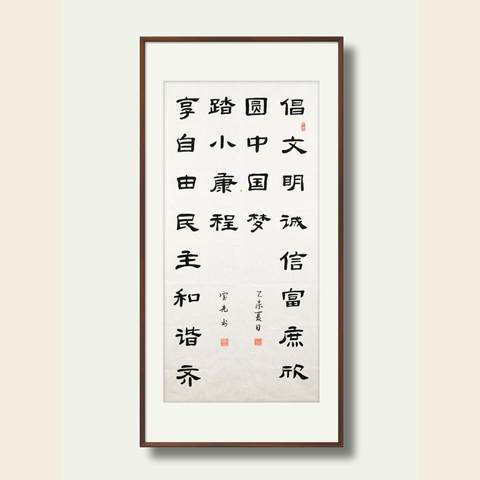 倡文明诚信富庶欣
圆中国梦
乙未夏日
踏小康程
光书
享自由民主和谐齐